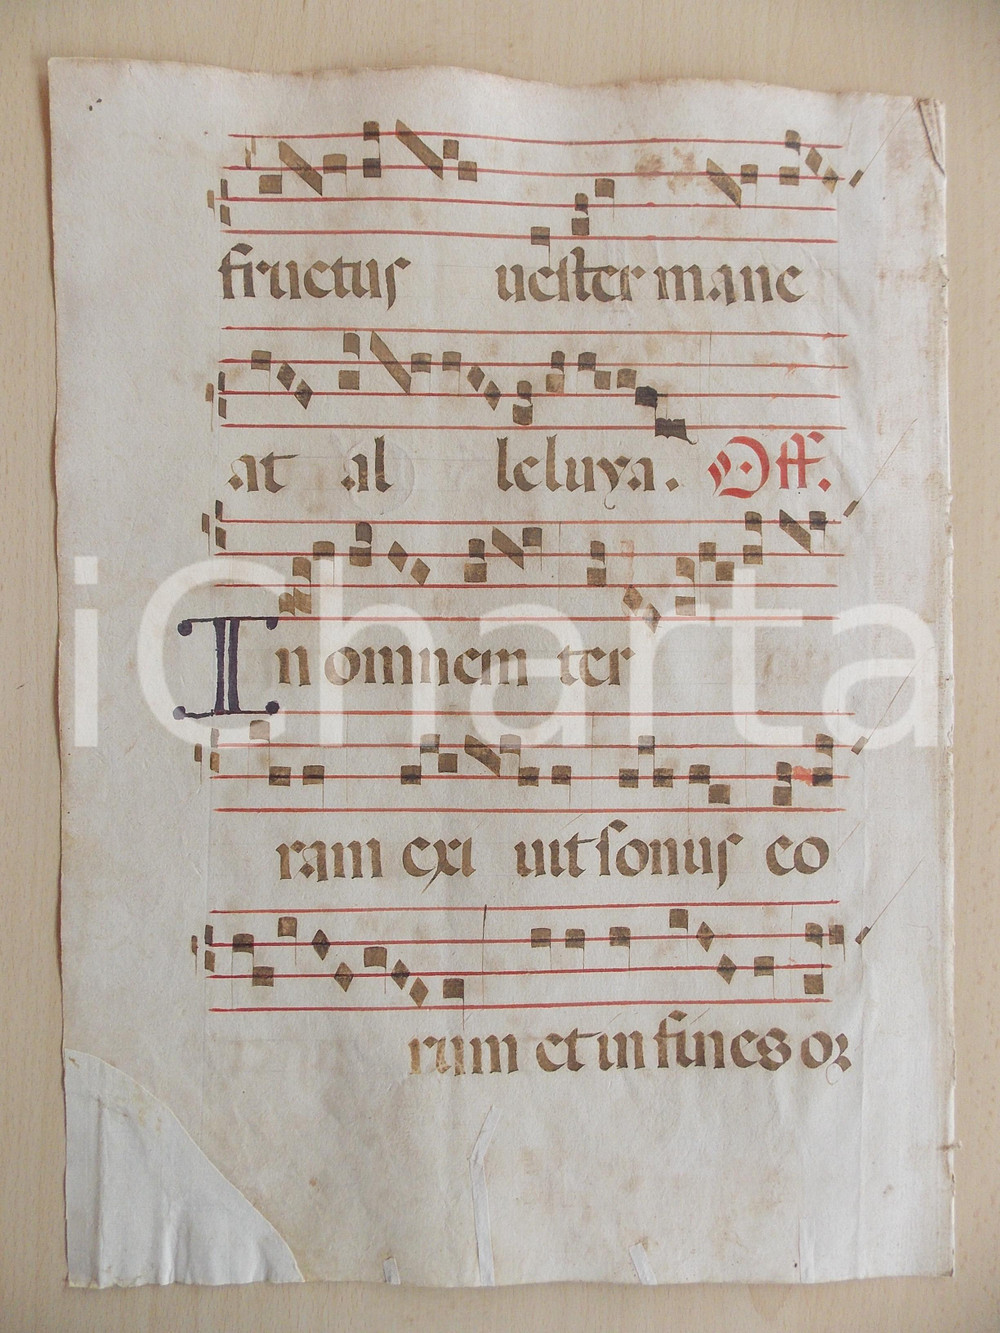 fructus uester mane
at al leluya. Off.
In omnem ter
iCharta
ram exi uit sonus co
rum et in fines oꝛ